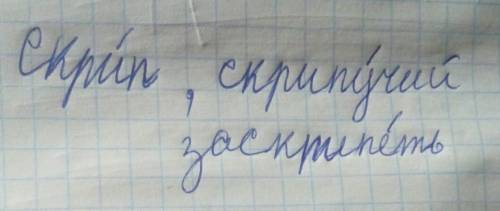 Скри́п, скрипу́чий
заскрипе́ть